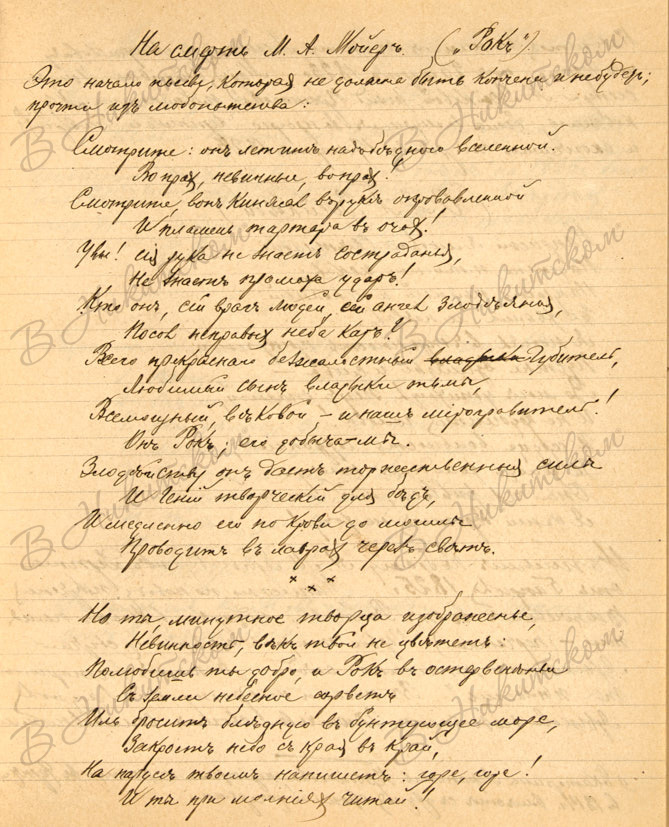 На смерть М. А. Мойеръ. („Рокъ“).
Это начало пьесы, которая не должна быть кончена и не будетъ;
прочти изъ любопытства:
Смотрите: онъ летитъ надъ бѣдною вселенной.
Во прахъ, невинные, во прахъ!
Смотрите, вонъ кинжалъ въ рукѣ окровавленной
И пламень тартара въ очахъ!
Увы! сія рука не знаетъ состраданья,
Не знаетъ промаха ударъ!
Кто онъ, сей врагъ людей, сей ангелъ злодѣянья,
Посолъ неправыхъ неба каръ?
Всего прекраснаго безжалостный губитель,
Любимый сынъ владыки тьмы,
Всемощный, вѣковой – и нашъ мiроправитель!
Онъ Рокъ; его добыча – мы.
Злодѣйству онъ даетъ торжественныя силы
И Геній творческій для бѣдъ,
И медленно его по крови до могилы
Проводитъ въ лаврахъ черезъ свѣтъ.
× × ×
Но ты, минутное творца изображенье,
Невинность, вѣкъ твой не цвѣтетъ:
Полюбишь ты добро, и Рокъ въ остервененьи
Съ земли небесное сорветъ
Иль броситъ блѣдную въ бунтующее море,
Закроетъ небо съ края въ край,
На парусѣ твоемъ напишетъ: горе, горе!
И ты при молніяхъ читай!"
В Никитском
В Никитском
В Никитском
В Никитском
В Никитском
В Никитском
В Никитском
В Никитском